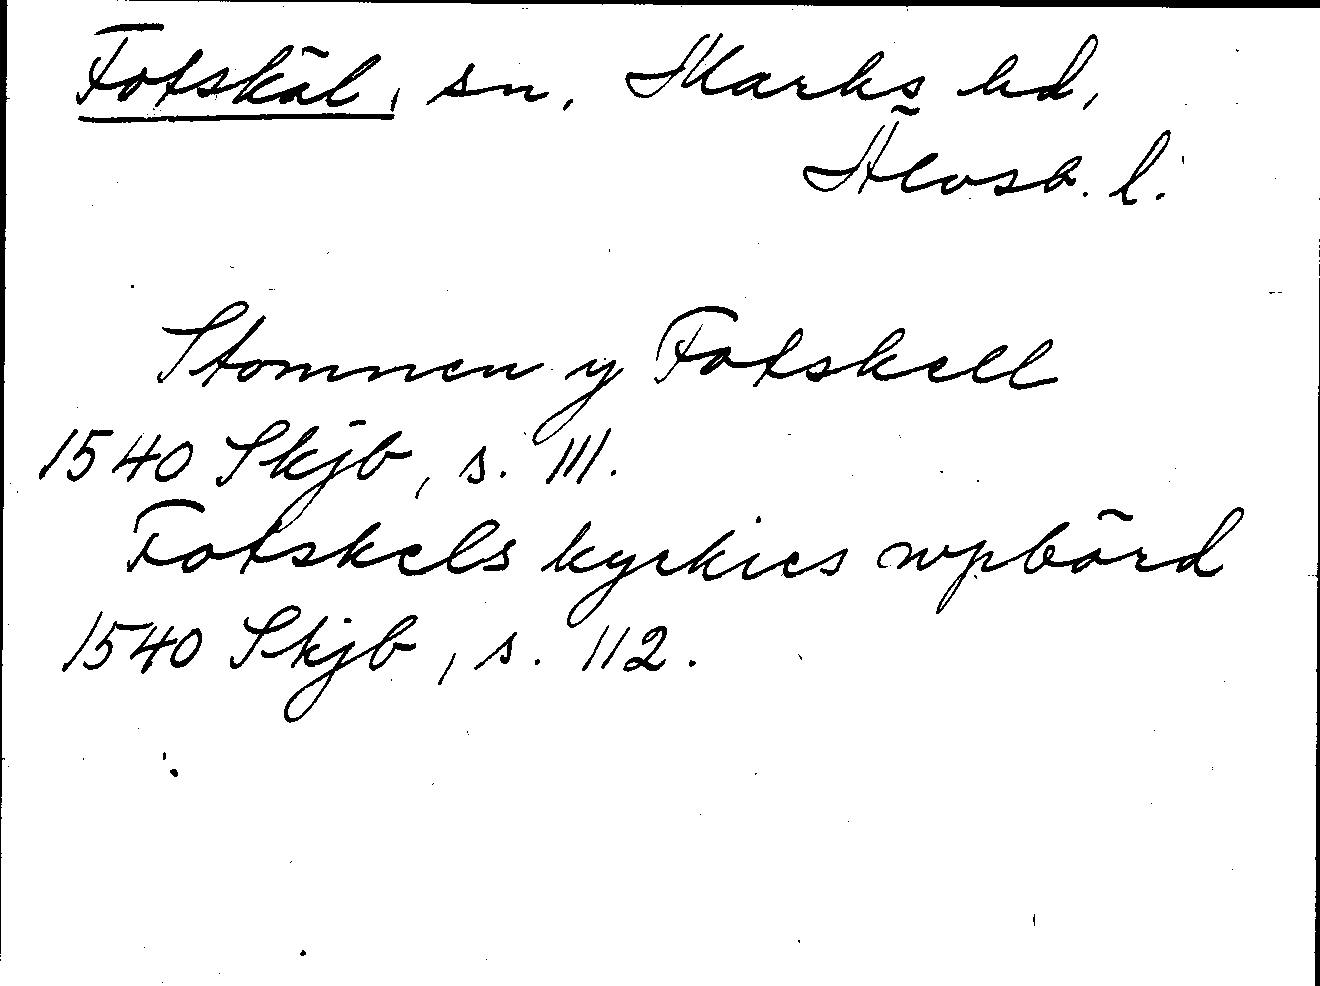 Fotskäl, sn, Marks hd,
Älvsb. l.
Stomnen y Fotskell
1540 Skjb, s. 111.
Fotskels kyrkies wpbörd
1540 Skjb, s. 112.